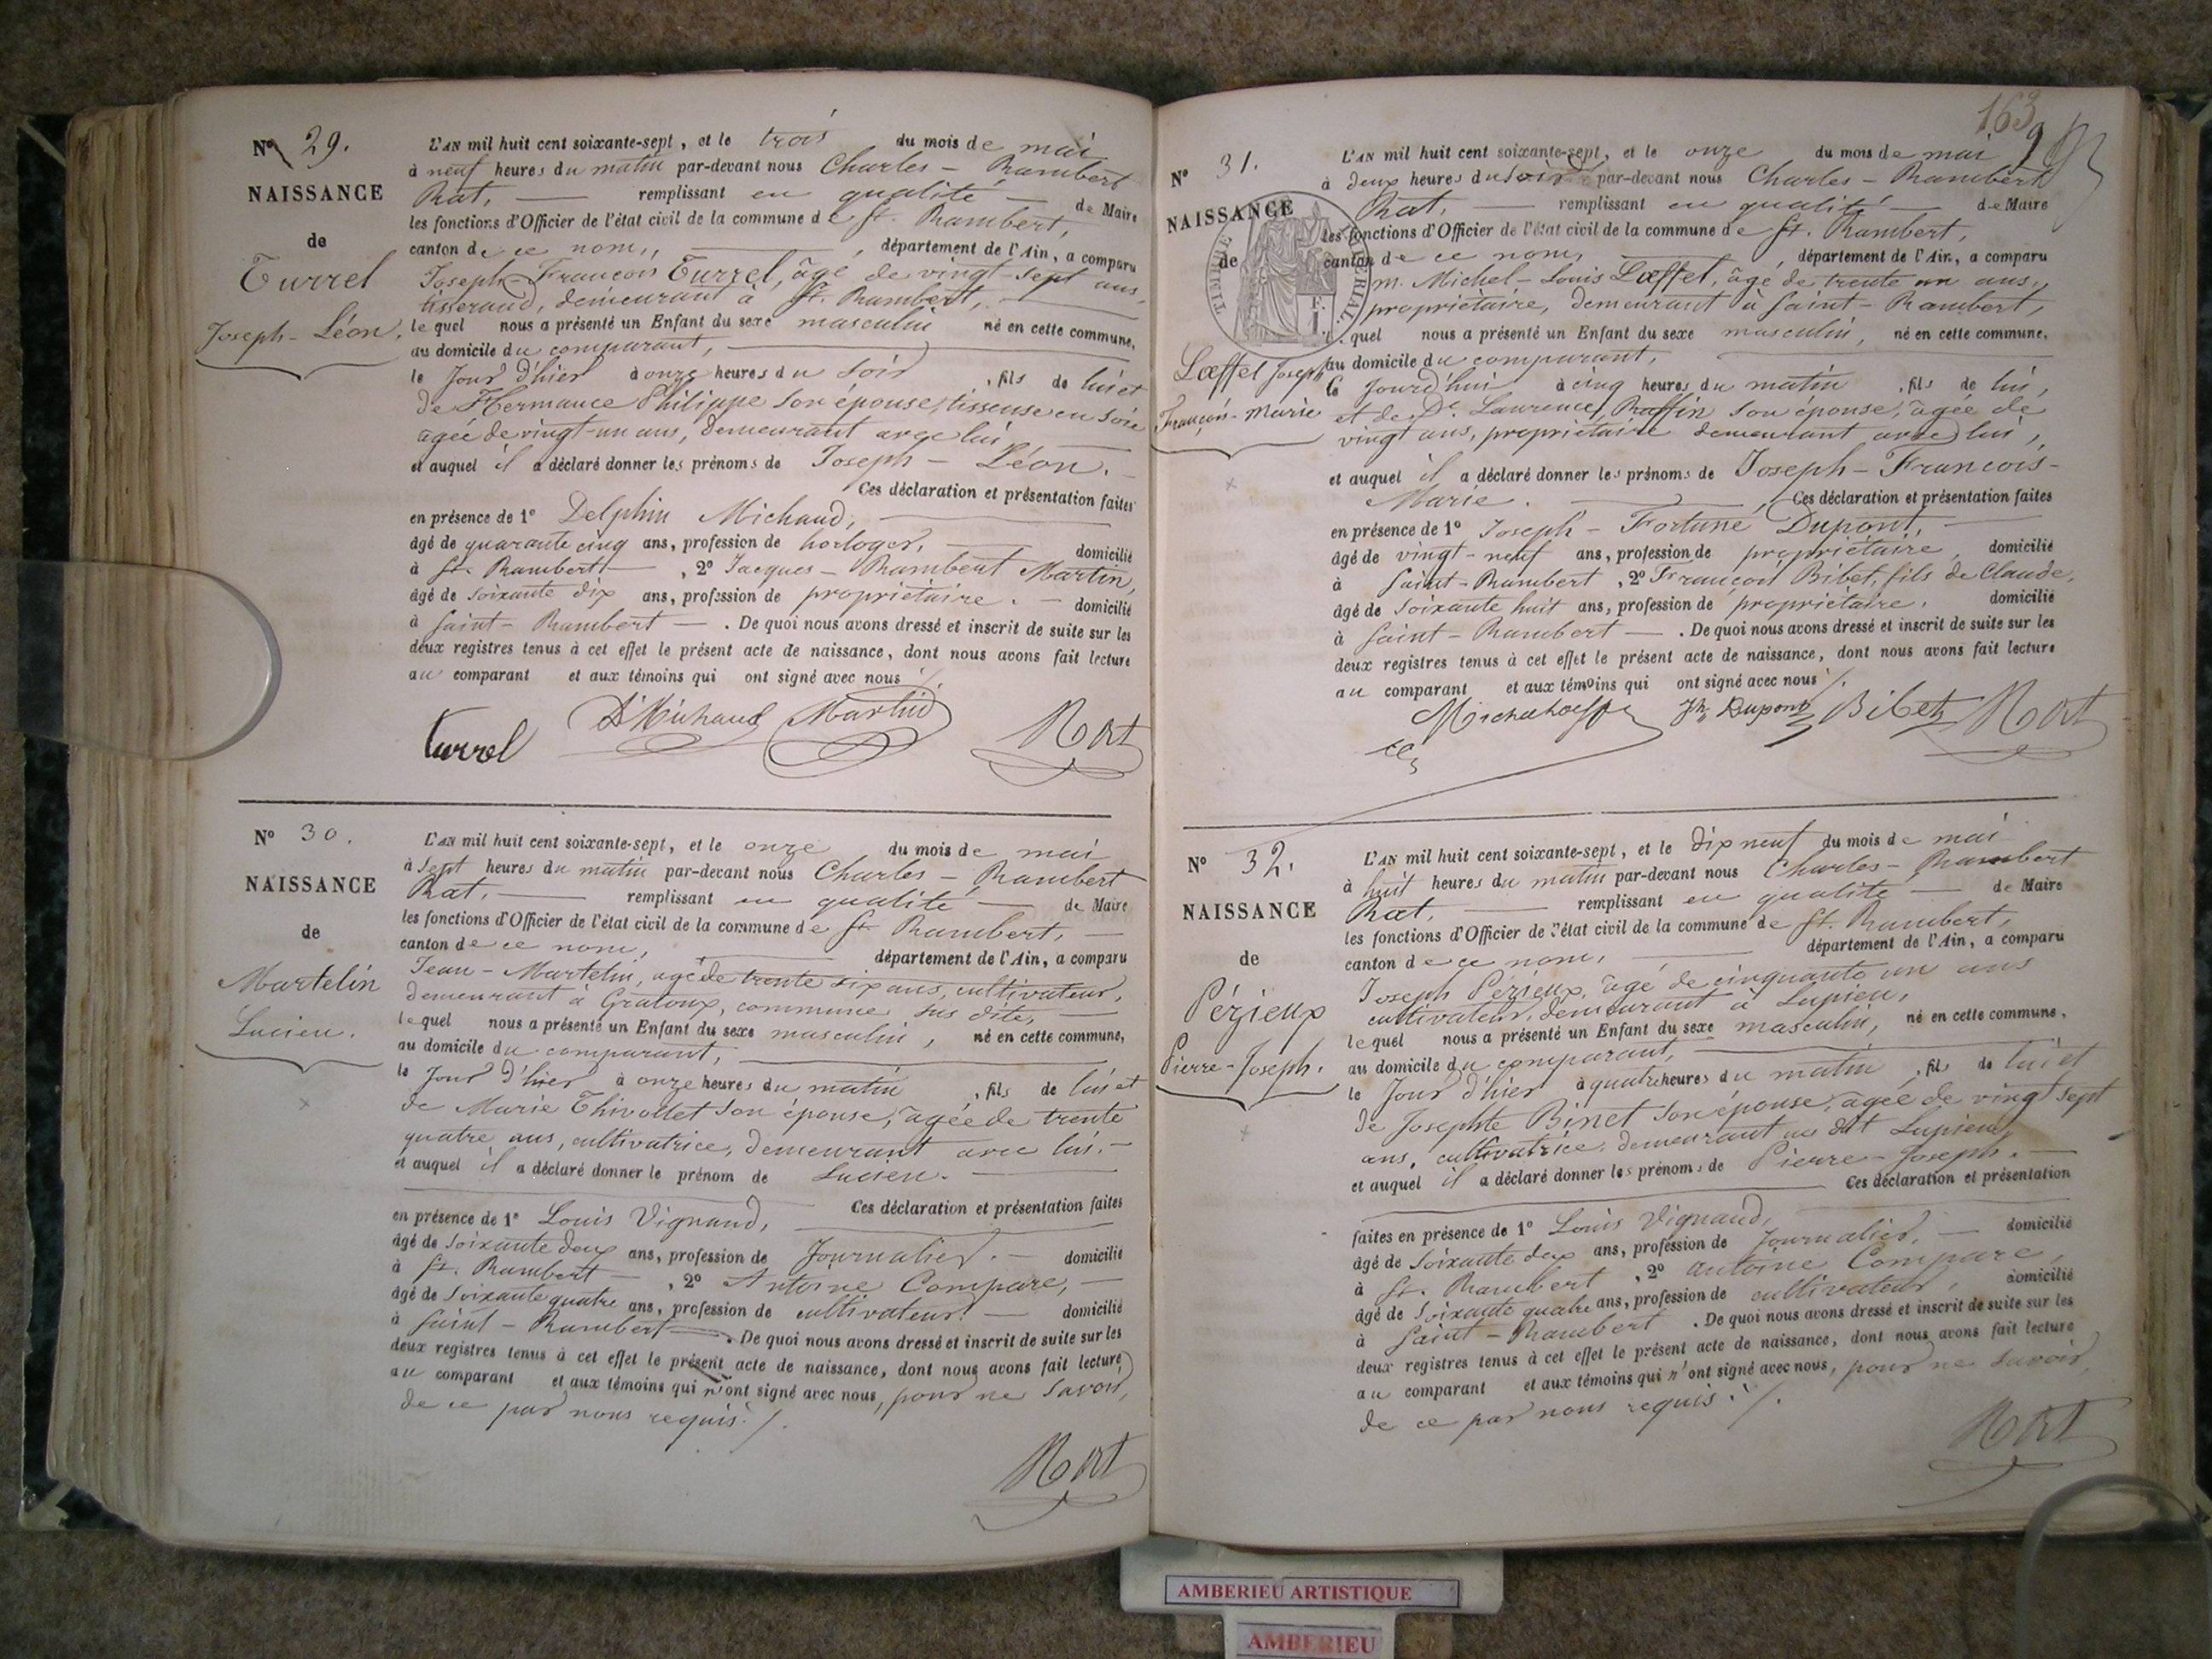 Nº 29.
NAISSANCE
de
Turrel
Joseph-Léon.
L'AN mil huit cent soixante-sept, et le trois du mois de mai
à neuf heures du matin par-devant nous Charles-Rambert
Rat, remplissant en qualité de Maire
les fonctions d'Officier de l'état civil de la commune de St. Rambert,
canton de ce nom, département de l'Ain, a comparu
Joseph-François Turrel, âgé de vingt-sept ans,
tisserand, demeurant à St. Rambert,
lequel nous a présenté un Enfant du sexe masculin né en cette commune,
au domicile du comparant,
le Jour d'hier à onze heures du soir, fils de lui et
de Hermance Philippe son épouse, tisseuse en soie
agée de vingt-un ans, demeurant avec lui,
et auquel il a déclaré donner les prénoms de Joseph-Léon.
Ces déclaration et présentation faites
en présence de 1º Delphin Michaud,
âgé de quarante cinq ans, profession de horloger, domicilié
à St. Rambert, 2º Jacques-Rambert Martin,
âgé de soixante dix ans, profession de propriétaire. domicilié
à Saint-Rambert. De quoi nous avons dressé et inscrit de suite sur les
deux registres tenus à cet effet le présent acte de naissance, dont nous avons fait lecture
au comparant et aux témoins qui ont signé avec nous ./.
Turrel D Michaud Martin Rat
Nº 30.
NAISSANCE
de
Martelin
Lucien.
L'AN mil huit cent soixante-sept, et le onze du mois de mai
à sept heures du matin par-devant nous Charles-Rambert
Rat, remplissant en qualité de Maire
les fonctions d'Officier de l'état civil de la commune de St. Rambert,
canton de ce nom, département de l'Ain, a comparu
Jean-Martelin, agé de trente six ans, cultivateur,
demeurant à Gratoux, commune sus dite,
lequel nous a présenté un Enfant du sexe masculin, né en cette commune,
au domicile du comparant,
le Jour d'hier à onze heures du matin, fils de lui et
de Marie Thivollet son épouse, agée de trente
quatre ans, cultivatrice, demeurant avec lui.
et auquel il a déclaré donner le prénom de Lucien.
Ces déclaration et présentation faites
en présence de 1º Louis Vignand,
âgé de soixante deux ans, profession de Journalier. domicilié
à St. Rambert, 2º Antoine Compare,
âgé de soixante quatre ans, profession de cultivateur. domicilié
à Saint-Rambert. De quoi nous avons dressé et inscrit de suite sur les
deux registres tenus à cet effet le présent acte de naissance, dont nous avons fait lecture
au comparant et aux témoins qui n'ont signé avec nous, pour ne savoir,
de ce par nous requis ./.
Rat
163
Nº 31.
NAISSANCE
de
TIMBRE IMPÉRIAL
Lœffel Joseph
François-Marie
L'AN mil huit cent soixante-sept, et le onze du mois de mai
à deux heures du soir par-devant nous Charles-Rambert
Rat, remplissant en qualité de Maire
les fonctions d'Officier de l'état civil de la commune de St. Rambert,
canton de ce nom, département de l'Ain, a comparu
m. Michel-Louis Lœffel, âgé de trente un ans,
propriétaire, demeurant à Saint-Rambert,
lequel nous a présenté un Enfant du sexe masculin, né en cette commune,
au domicile du comparant,
le Jourd'hui à cinq heures du matin, fils de lui,
et de De. Laurence Raffin son épouse, agée de
vingt ans, propriétaire demeurant avec lui,
et auquel il a déclaré donner les prénoms de Joseph-François-
Marie. Ces déclaration et présentation faites
en présence de 1º Joseph-Fortuné Dupont,
âgé de vingt-neuf ans, profession de propriétaire, domicilié
à Saint-Rambert, 2º François Bibet, fils de Claude,
âgé de soixante huit ans, profession de propriétaire. domicilié
à Saint-Rambert. De quoi nous avons dressé et inscrit de suite sur les
deux registres tenus à cet effet le présent acte de naissance, dont nous avons fait lecture
au comparant et aux témoins qui ont signé avec nous ./.
Jh Dupont Bibet Rat
Nº 32.
NAISSANCE
de
Périeux
Pierre-Joseph.
L'AN mil huit cent soixante-sept, et le dix neuf du mois de mai
à huit heures du matin par-devant nous Charles-Rambert
Rat, remplissant en qualité de Maire
les fonctions d'Officier de l'état civil de la commune de St. Rambert,
canton de ce nom, département de l'Ain, a comparu
Joseph Périeux, âgé de cinquante un ans
cultivateur, demeurant à Lupieu,
lequel nous a présenté un Enfant du sexe masculin, né en cette commune,
au domicile du comparant,
le Jour d'hier à quatre heures du matin, fils de lui et
de Josephte Binet son épouse, agée de vingt sept
ans, cultivatrice, demeurant au dit Lupieu,
et auquel il a déclaré donner les prénoms de Pierre-Joseph.
Ces déclaration et présentation
faites en présence de 1º Louis Vignand,
âgé de soixante deux ans, profession de Journalier, domicilié
à St. Rambert, 2º Antoine Compare,
âgé de soixante quatre ans, profession de cultivateur, domicilié
à Saint-Rambert. De quoi nous avons dressé et inscrit de suite sur les
deux registres tenus à cet effet le présent acte de naissance, dont nous avons fait lecture
au comparant et aux témoins qui n'ont signé avec nous, pour ne savoir,
de ce par nous requis ./.
Rat
AMBERIEU ARTISTIQUE
AMBERIEU